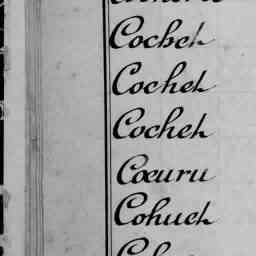 Cochet
Cochet
Cochet
Cœuru
Cohuet